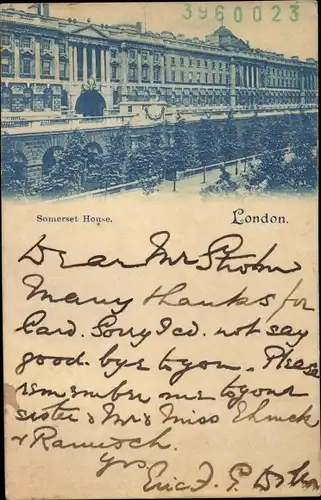 3960023
Somerset House.
London.
Dear Mr Strohm
Many thanks for
Card. Sorry I cd. not say
good-bye to you. Please
remember me to your
sister & Mr & Miss Ehmck
&
Yrs
Eric F. P.